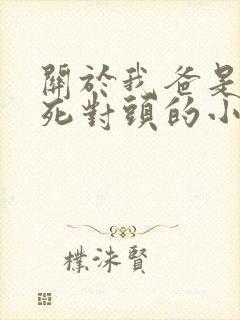 關於我爸是
死對頭的小
樸洙賢